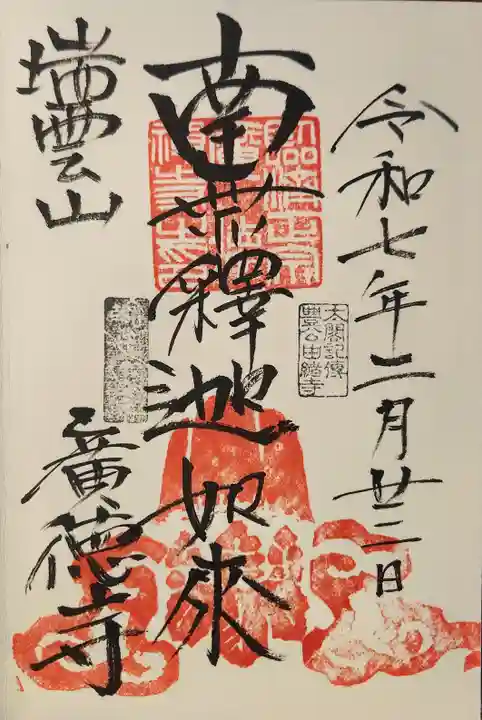 令和七年二月廿三日
太閤記傳
豊公由緒寺
南無釋迦如來
瑞雲山
廣德寺